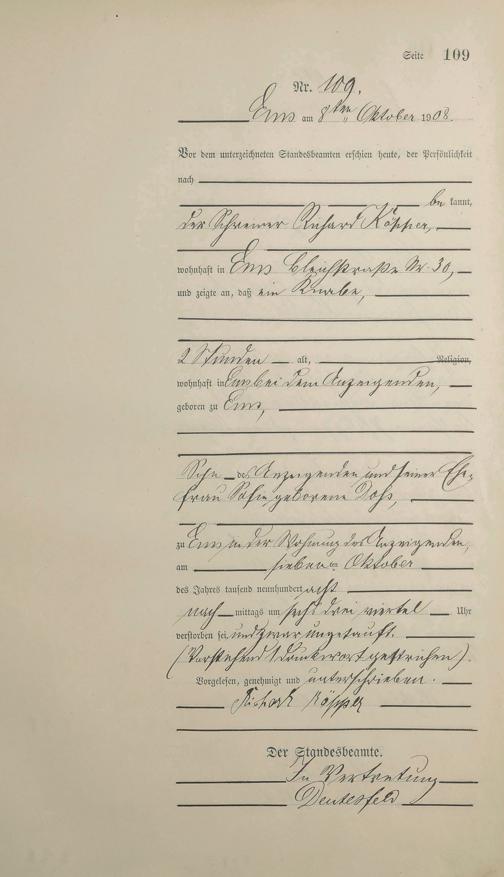 Seite 109
Nr. 109.
Ems am 8ten Oktober 1908.
Vor dem unterzeichneten Standesbeamten erschien heute, der Persönlichkeit
nach
be kannt,
der Schreiner Richard Köpper,
wohnhaft in Ems Bleichstraße Nr. 30,
und zeigte an, daß ein Knabe,
2 Stunden alt, Religion,
wohnhaft in Ems bei dem Anzeigenden,
geboren zu Ems,
Sohn des Anzeigenden und seiner Ehe-
frau geborene
zu Ems in der Wohnung des Anzeigenden,
am sieben ten Oktober
des Jahres tausend neunhundert acht
nach mittags um sechs drei viertel Uhr
verstorben sei, und zwar ungetauft.
(Vorstehend 1 Druckwort gestrichen).
Vorgelesen, genehmigt und unterschrieben.
Richard Köpper
Der Standesbeamte.
In Vertretung